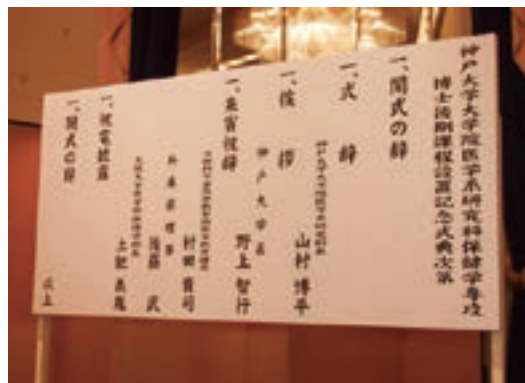 神戸大学大学院医学系研究科保健学専攻
博士後期課程設置記念式典次第
一、開式の辞
一、式辞
山村博平
一、挨拶
神戸大学長
野上智行
一、来賓祝辞
村田貴司
兵庫県理事
後藤武
一、祝電披露
一、閉式の辞
以上